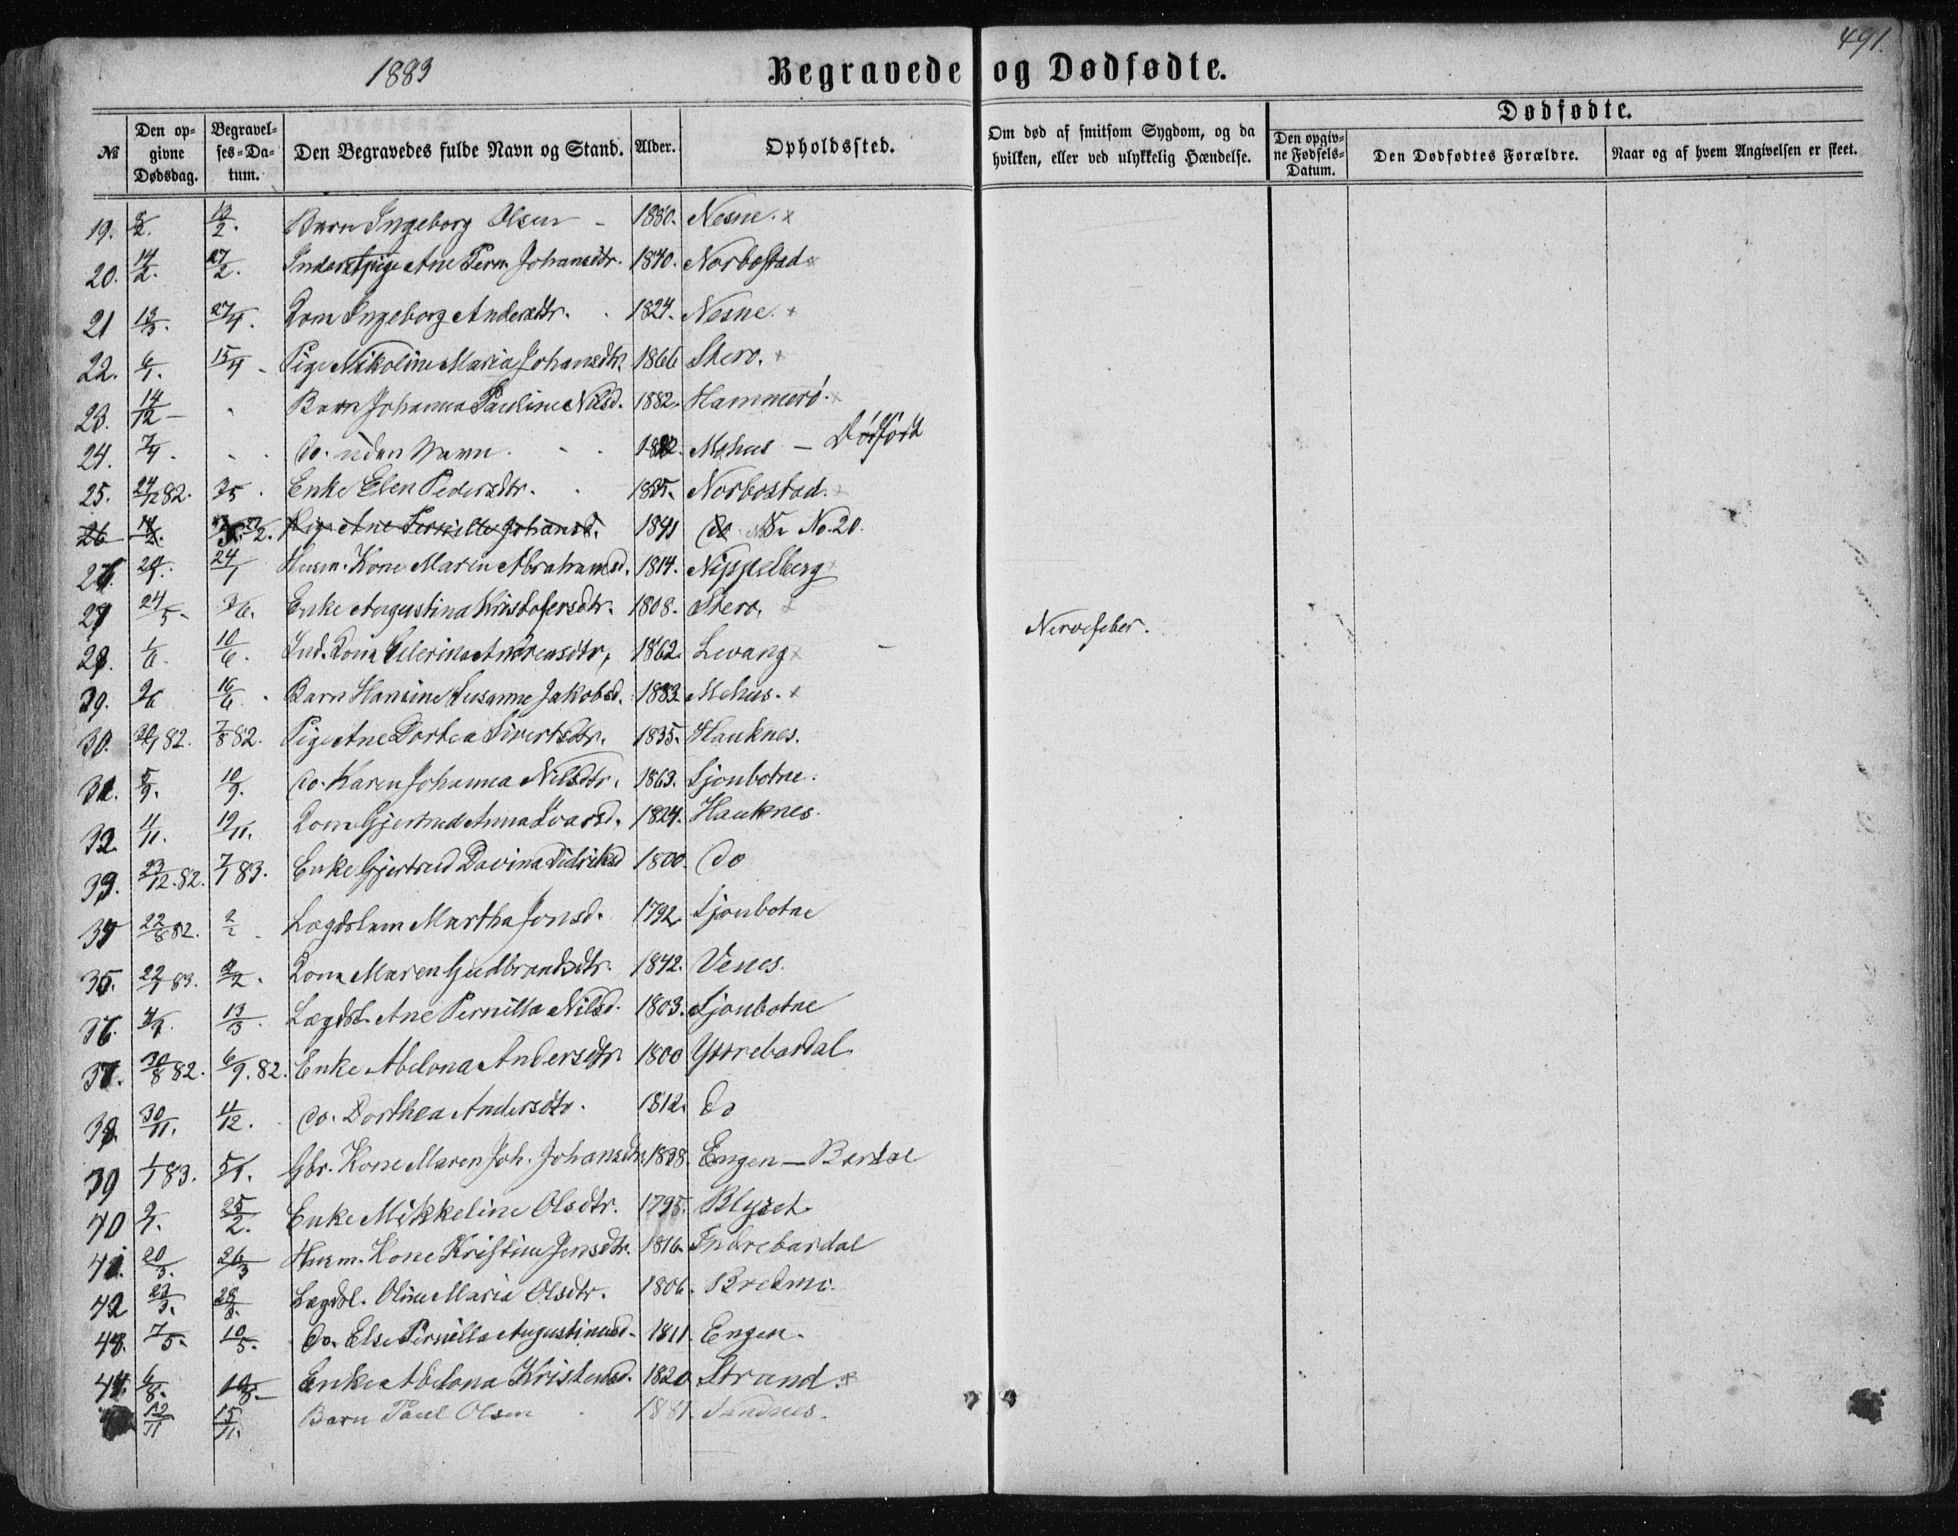 1883
Begravede og Dødfødte.
491.
Dødfødte.
№
Den opgivne Dødsdag.
Begravelses-Datum.
Den Begravedes fulde Navn og Stand.
Alder.
Opholdssted.
Om død af smitsom Sygdom, og da hvilken, eller ved ulykkelig Hændelse.
Den opgivne Fødsels-Datum.
Den Dødfødtes Forældre.
Naar og af hvem Angivelsen er skeet.
19. 8/2. 13/2. Barn Ingeborg Olsen 1880. Nesne. x
20. 14/2. 27/2. Inderstpige Ane Pern. Johansdtr. 1840. Norbostad x
21 13/3. 27/4. Kone Ingeborg Andersdtr. 1824. Nesne. x
22. 6/1. 15/4 Pige Nikoline Maria Johansdtr. 1866 Stero. x
23. 14/12 Barn Johanna Pauline Nilsd. 1882. Hammerø. x
24. 7/4. Do. uden Navn 1882. Mehus — Dødfødt
25. 24/12 82. 3/5. Enke Elen Pedersdtr. 1835. Norbostad. x
26 14/2. Pige Ane Pernille Johansd. 1841 do No. 20
26. 24/1 Husm. Kone Maren Abrahamsd. 1814. Nippelberg
27 24/5 3/6. Enke Augustina Kristofersdtr. 1808. Stero, x
28. 1/6. 10/6. Ind. Kone Andreasdtr, 1862. Levang x Nervefeber.
29. 9/6 16/6. Barn Hansine Susanne Jakobsd. 1883. Mehus. x
30. 82. 7/8 82. Pige Ane Dortea Sivertsdtr. 1835. Hauknes.
31. 5/9. 10/9. do. Karen Johanna Nilsdtr. 1863. Sjonbotne.
32. 4/11. 19/11. Kone Gjertrud Anna Ivarsd. 1824. Hauknes.
33. 23/12. 82. 7/1 83. Enke Gjertrud Davina Didriksd 1800. do
34 22/8 82. 2/2 Lægdslem Martha Jonsd. 1792. Sjonbotne
35. 22/1 83. 2/2. Kone Maren Gudbrandsdtr. 1842. Venes.
36. 13/3. Lægdsl. Ane Pernilla Nilsd. 1803. Sjonbotne
37. 30/8 82. 6/9. 82. Enke Abelona Andersdtr. 1800 Yttrebardal.
38. 30/11. 4/12. do. Dorthea Andersdtr. 1812. do
39 1/1 83. 5/1. Gbr. Kone Maren Joh. Johansdtr. 1828. Engen — Bardal
40 9/1. 25/2. Enke Mikkeline Olsdtr. 1795. Blyset.
41. 20/3. 26/3 Husm. Kone Kristine Jensdtr. 1816. Indrebardal
42 22/3. 28/3. Lægdsl. Oline Maria Olsdtr. 1806. Bredmo.
43. 7/5. 10/5. Do. Else Pernilla Augustinusd. 1811. Engen.
44. 6/8. 10/8. Enke Abelona Kristensd. 1820 Strand. x
12/11 15/11. Barn Paul Olsen 1881. Sandnes.